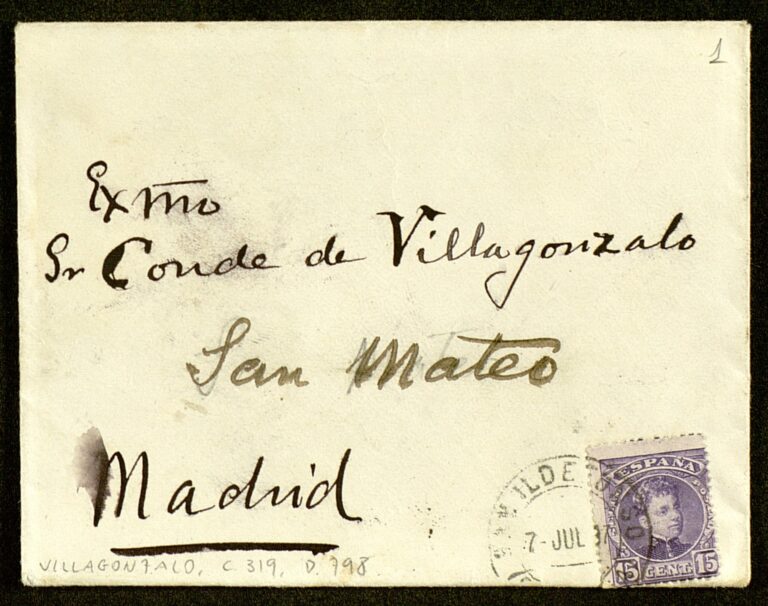 1
Exmo
Sr Conde de Villagonzalo
San Mateo
Madrid
ILDEFONSO
7-JUL
ESPAÑA
15 CENT. 15
VILLAGONZALO, C 319, D. 798